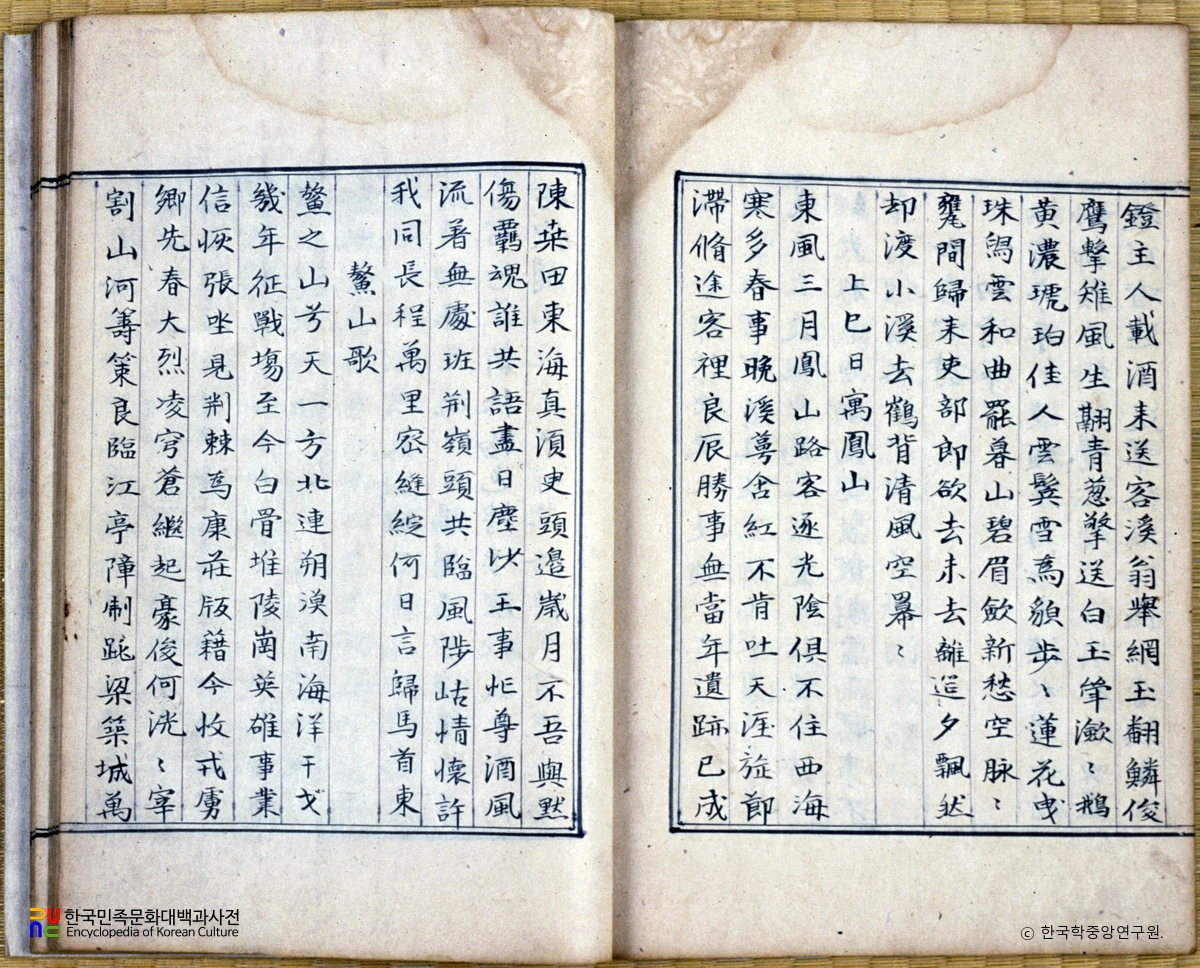 鐙主人載酒來送客溪翁舉網玉翻鱗俊
鷹擊雉風生翮青葱擎送白玉肇瀲〻鵝
黃濃琥珀佳人雲鬟雪爲貌步〻蓮花曳
珠舄雲和曲罷暮山碧眉歛新愁空脉〻
甕間歸來吏部郎欲去未去離筵夕飄然
却渡小溪去鶴背清風空羃〻
上巳日寓鳳山
東風三月鳳山路客逐光陰俱不住西海
寒多春事晚溪萼含紅不肯吐天涯旋節
滯脩途客裡良辰勝事無當年遺跡已成
陳桒田東海真湏史頭邉歲月不吾與黙
傷羈魂誰共語盡日塵沙王事忙尊酒風
流着無處班荆嶺頭共臨風陟岵情懷許
我同長程萬里密縫綻何日言歸馬首東
鰲山歌
鰲之山兮天一方北連朔漠南海洋干戈
幾年征戰塲至今白骨堆陵崗英雄事業
信恢張坐見荆棘爲康莊版籍今收戎虜
鄉先春大烈凌穹蒼繼起豪俊何洸〻宰
割山河籌策良臨江亭障制跳梁築城萬
한국민족문화대백과사전
Encyclopedia of Korean Culture
ⓒ 한국학중앙연구원.